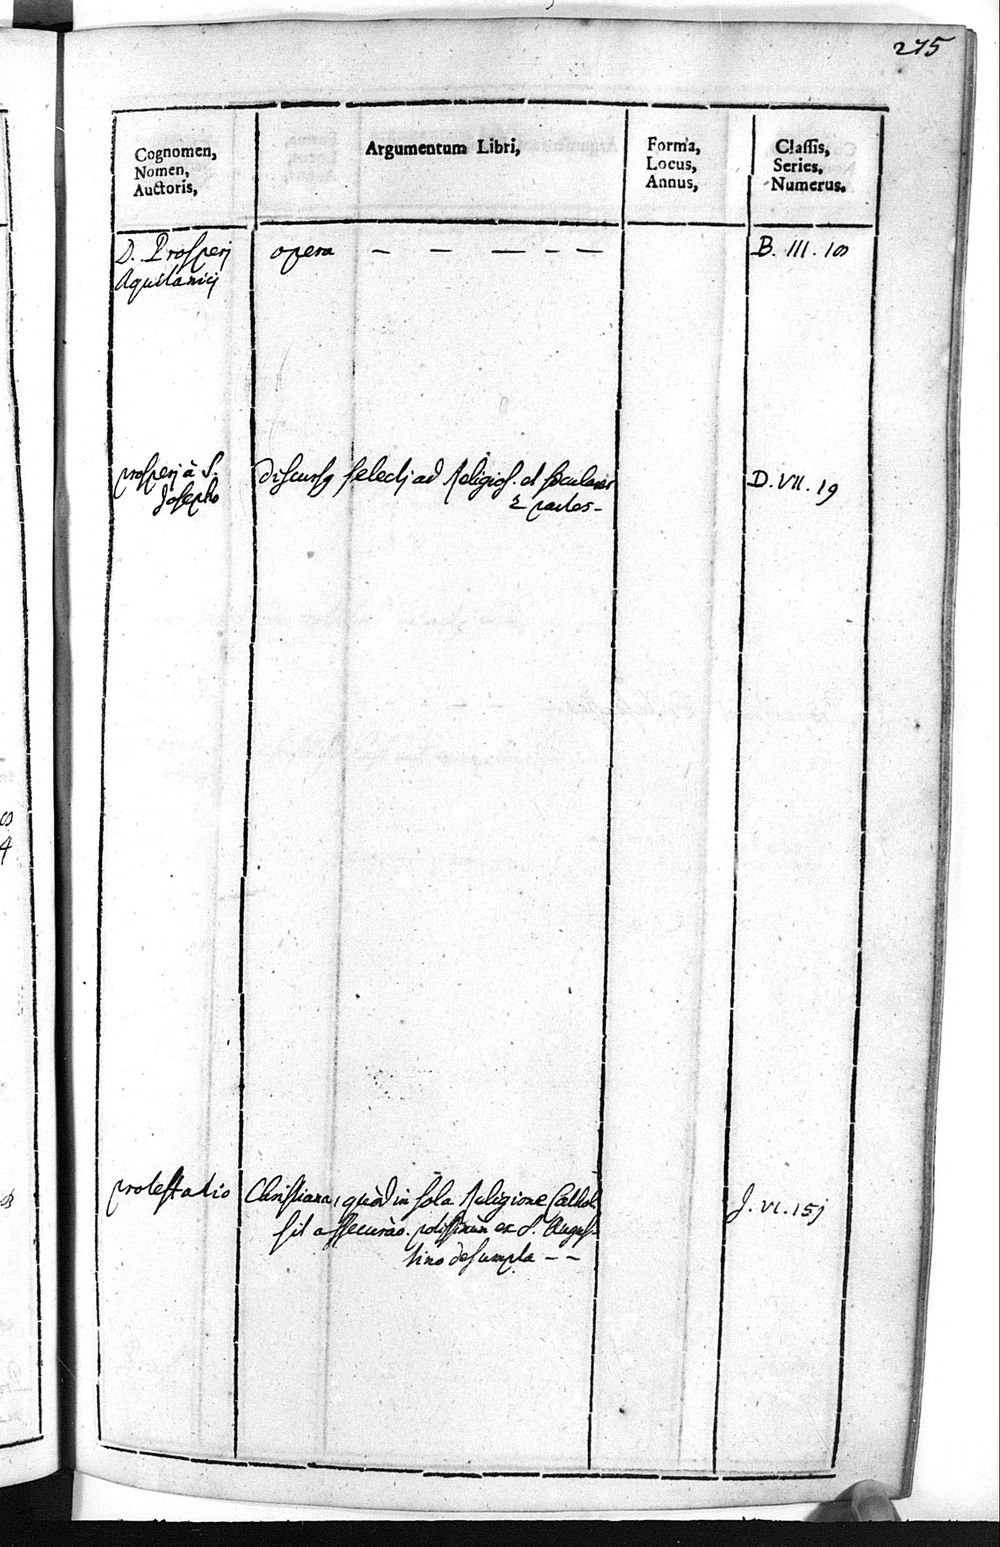 275
Cognomen,
Nomen,
Auctoris,
Argumentum Libri,
Forma,
Locus,
Annus,
Classis,
Series,
Numerus.
D. Prosperj
Aquitanicj
opera — — — — —
B. III. 18
prosperj à S.
Josepho
Discursq selectj ad Religios. et sęculares
2 partes -
D. VII. 19
protestatio
Christiana, quòd in sola Religione Cathol.
sit assecurão. potissimùm ex S. Augus-
tino desumpta - -
J. VI. 15j